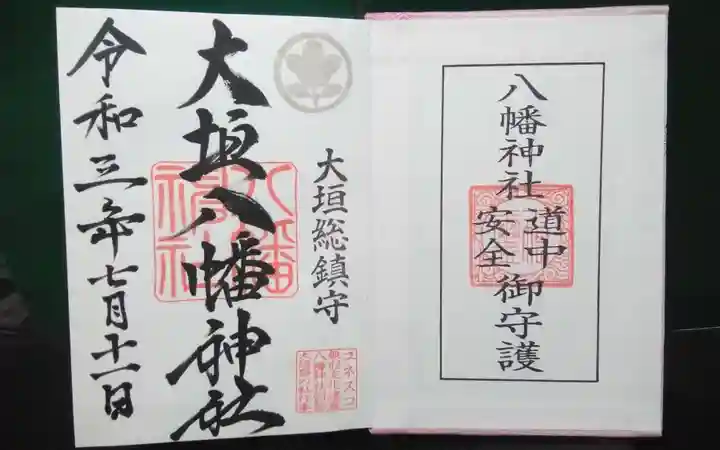 八幡神社
道中
安全
御守護
大垣総鎮守
大垣八幡神社
八幡
神社
令和三年七月十一日
ユネスコ